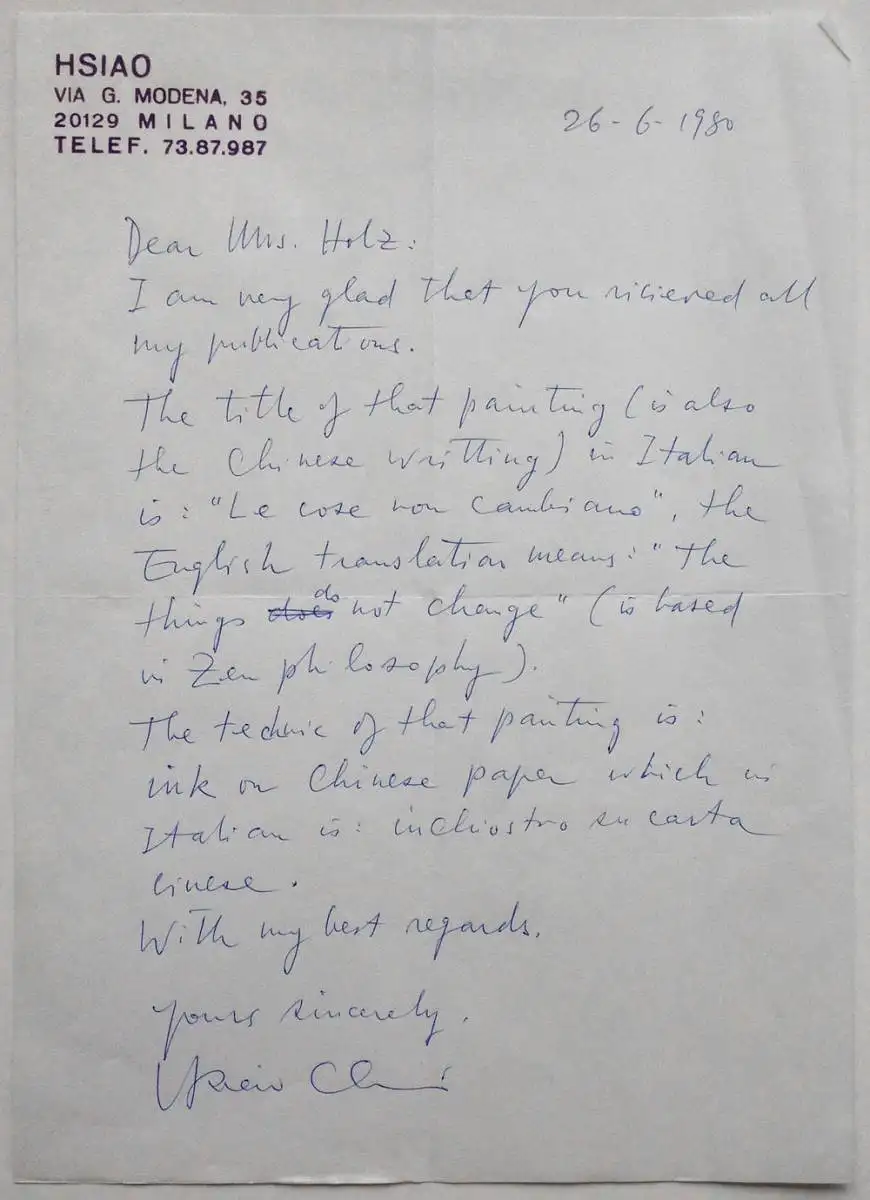 HSIAO
VIA G. MODENA, 35
20129 MILANO
TELEF. 73.87.987
26-6-1980
Dear Mrs. Holz:
I am very glad that you ricieved all
my publications.
The title of that painting (is also
the Chinese writting) in Italian
is: "Le cose non cambiano", the
English translation means: "the
things does do not change" (is based
in Zen philosophy).
The technic of that painting is:
ink on Chinese paper which in
Italian is: inchiostro su carta
cinese.
With my best regards.
Yours sincerely.
Hsiao Chin